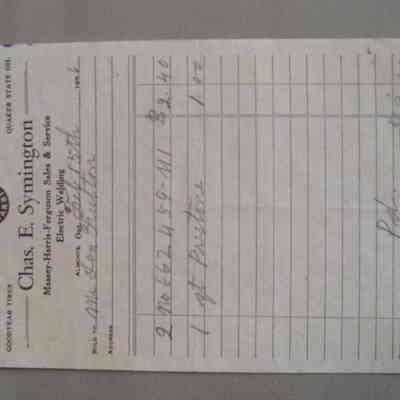 GOODYEAR TIRES QUAKER STATE OIL
Chas. E. Symington
Massey-Harris-Ferguson Sales & Service
Electric Welding
ALMONTE, Ont., Feb 15th 1956
SOLD TO Mr Len Fulton
ADDRESS
2 No 662 459-M1 $ 2.40
1 qt Prestone 1.00
Pd.